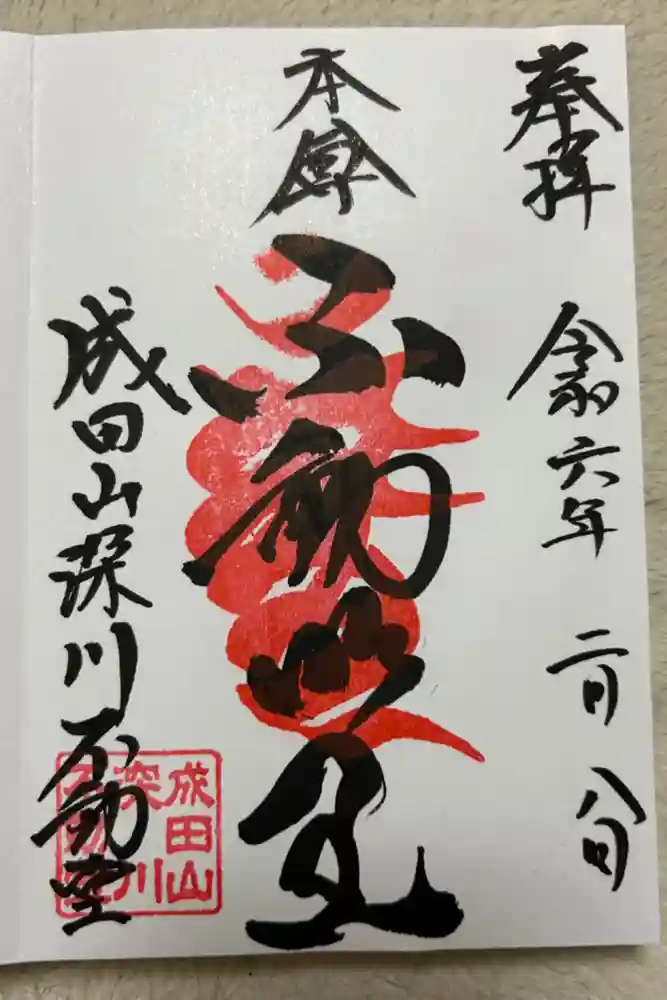 奉拝
令和六年 二月 八日
本尊
不動明王
成田山深川不動堂
成田山
深川
不動堂